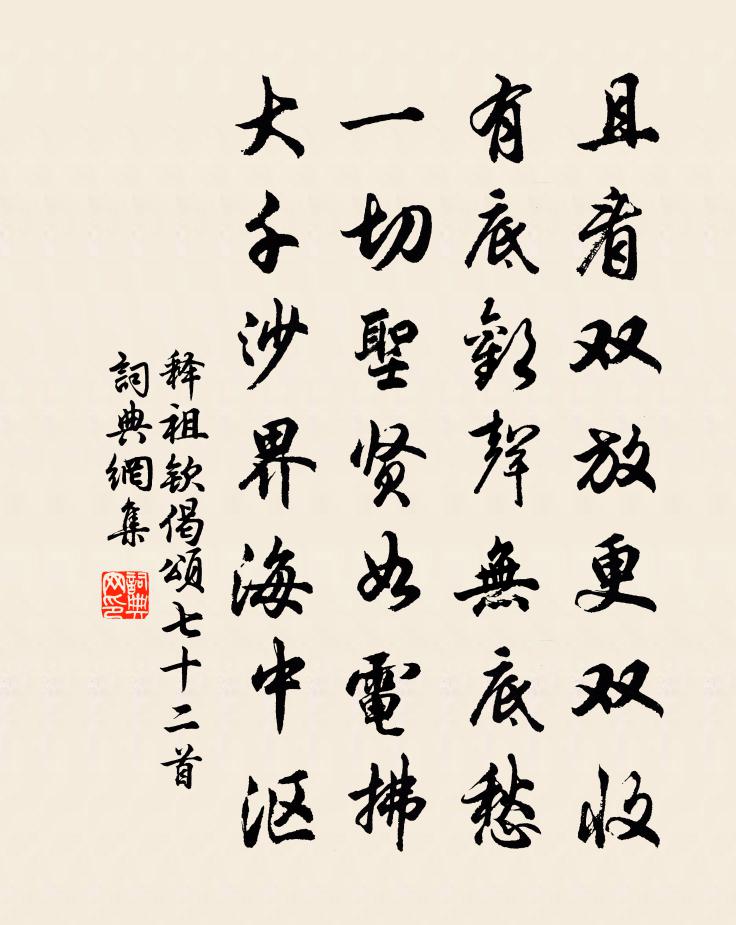 且看双放更双收
有底歡聲無底愁
一切聖贤如電拂
大千沙界海中沤
释祖欽偈頌七十二首
詞典網集
詞典网印